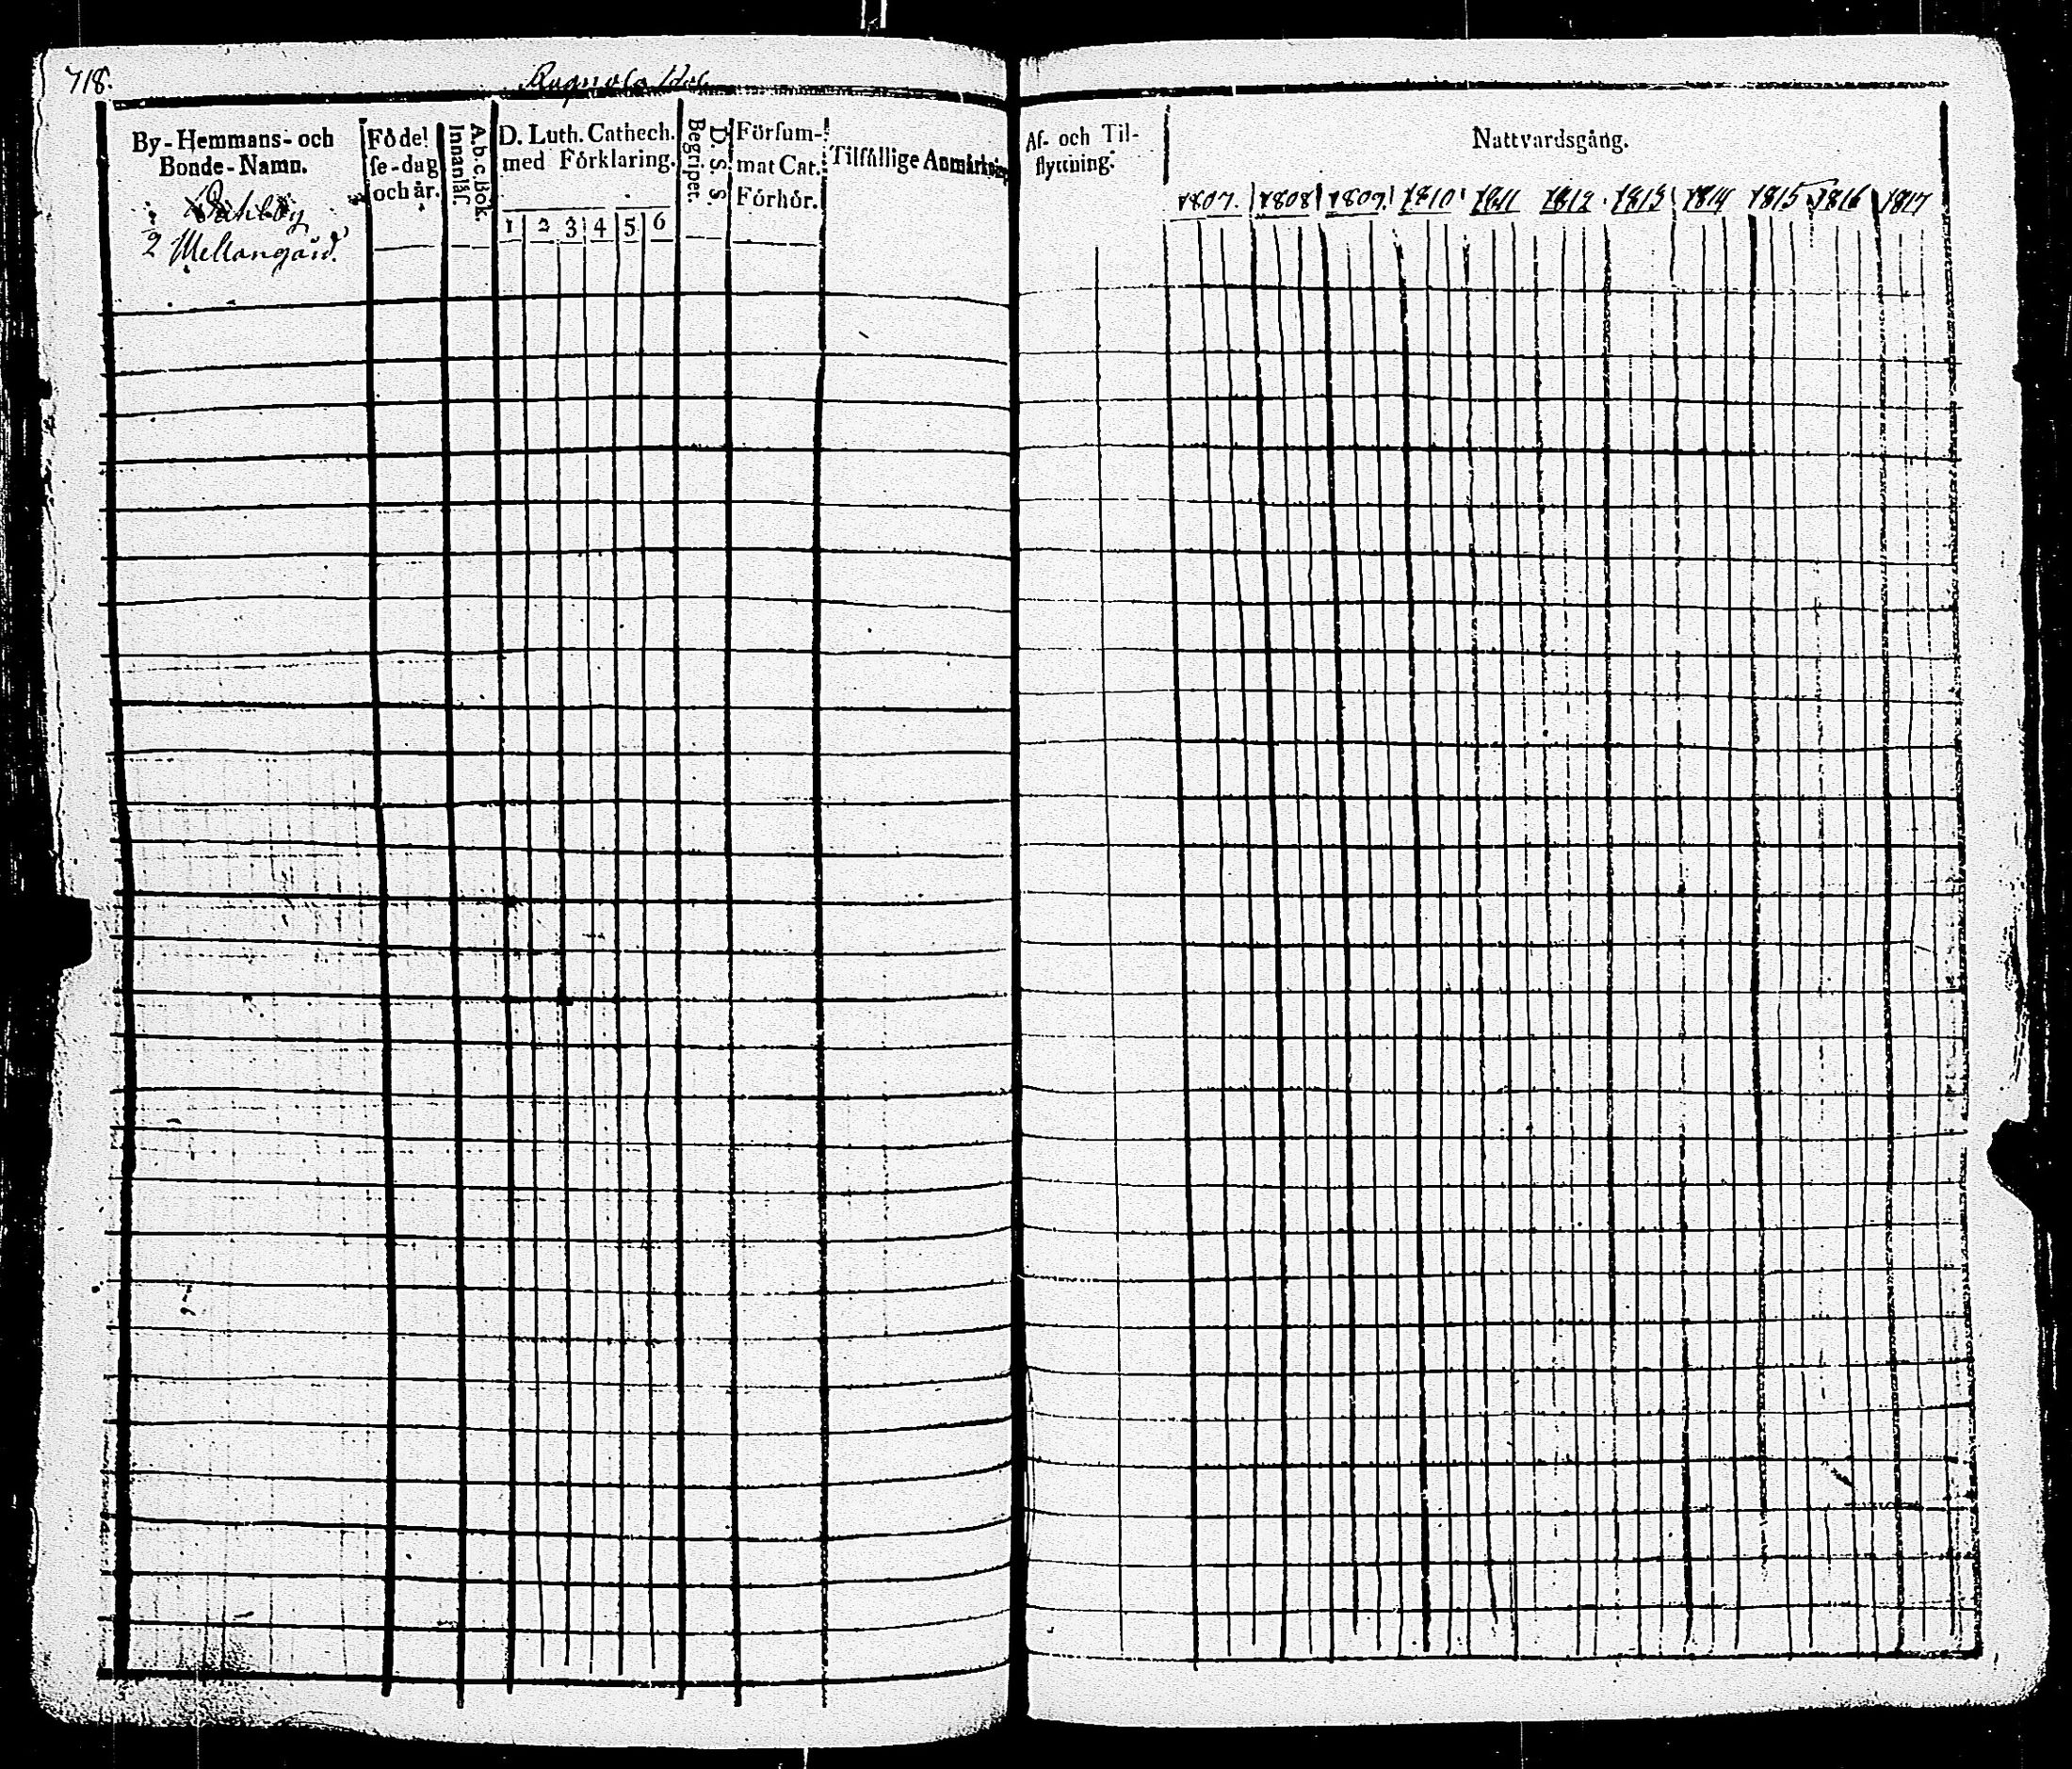 718.
By-Hemmans- och
Bonde-Namn.
2 Mellangård.
Födel
se-dag
och år.
A.b.c.Bok
Innanläs.
D. Luth. Cathech.
med Förklaring.
1 2 3 4 5 6
D. S. S.
Begripet.
Försum-
mat Cat.
Förhör.
Tilfällige Anmärkning
Af- och Til-
flyttning.
Nattvardsgång.
1807. 1808 1809. 1810 1811 1812 1813 1814 1815 1816 1817